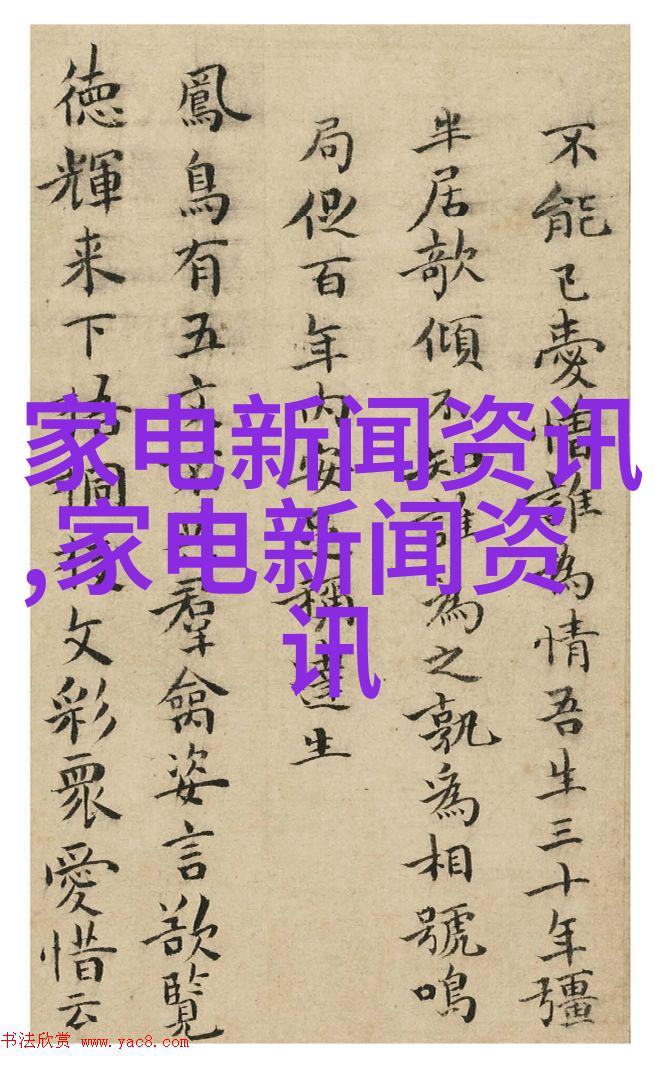 不能已憂憎誰為情吾生三十年彊
半居欹傾不知誰為之孰為相號鳴
局促百年內安稱達生
鳳鳥有五文羣禽姿言欲覽
德輝来下梧桐文彩衆愛惜云
家电新闻资讯
,家电新闻资
讯
书法欣赏 www.yac8.com